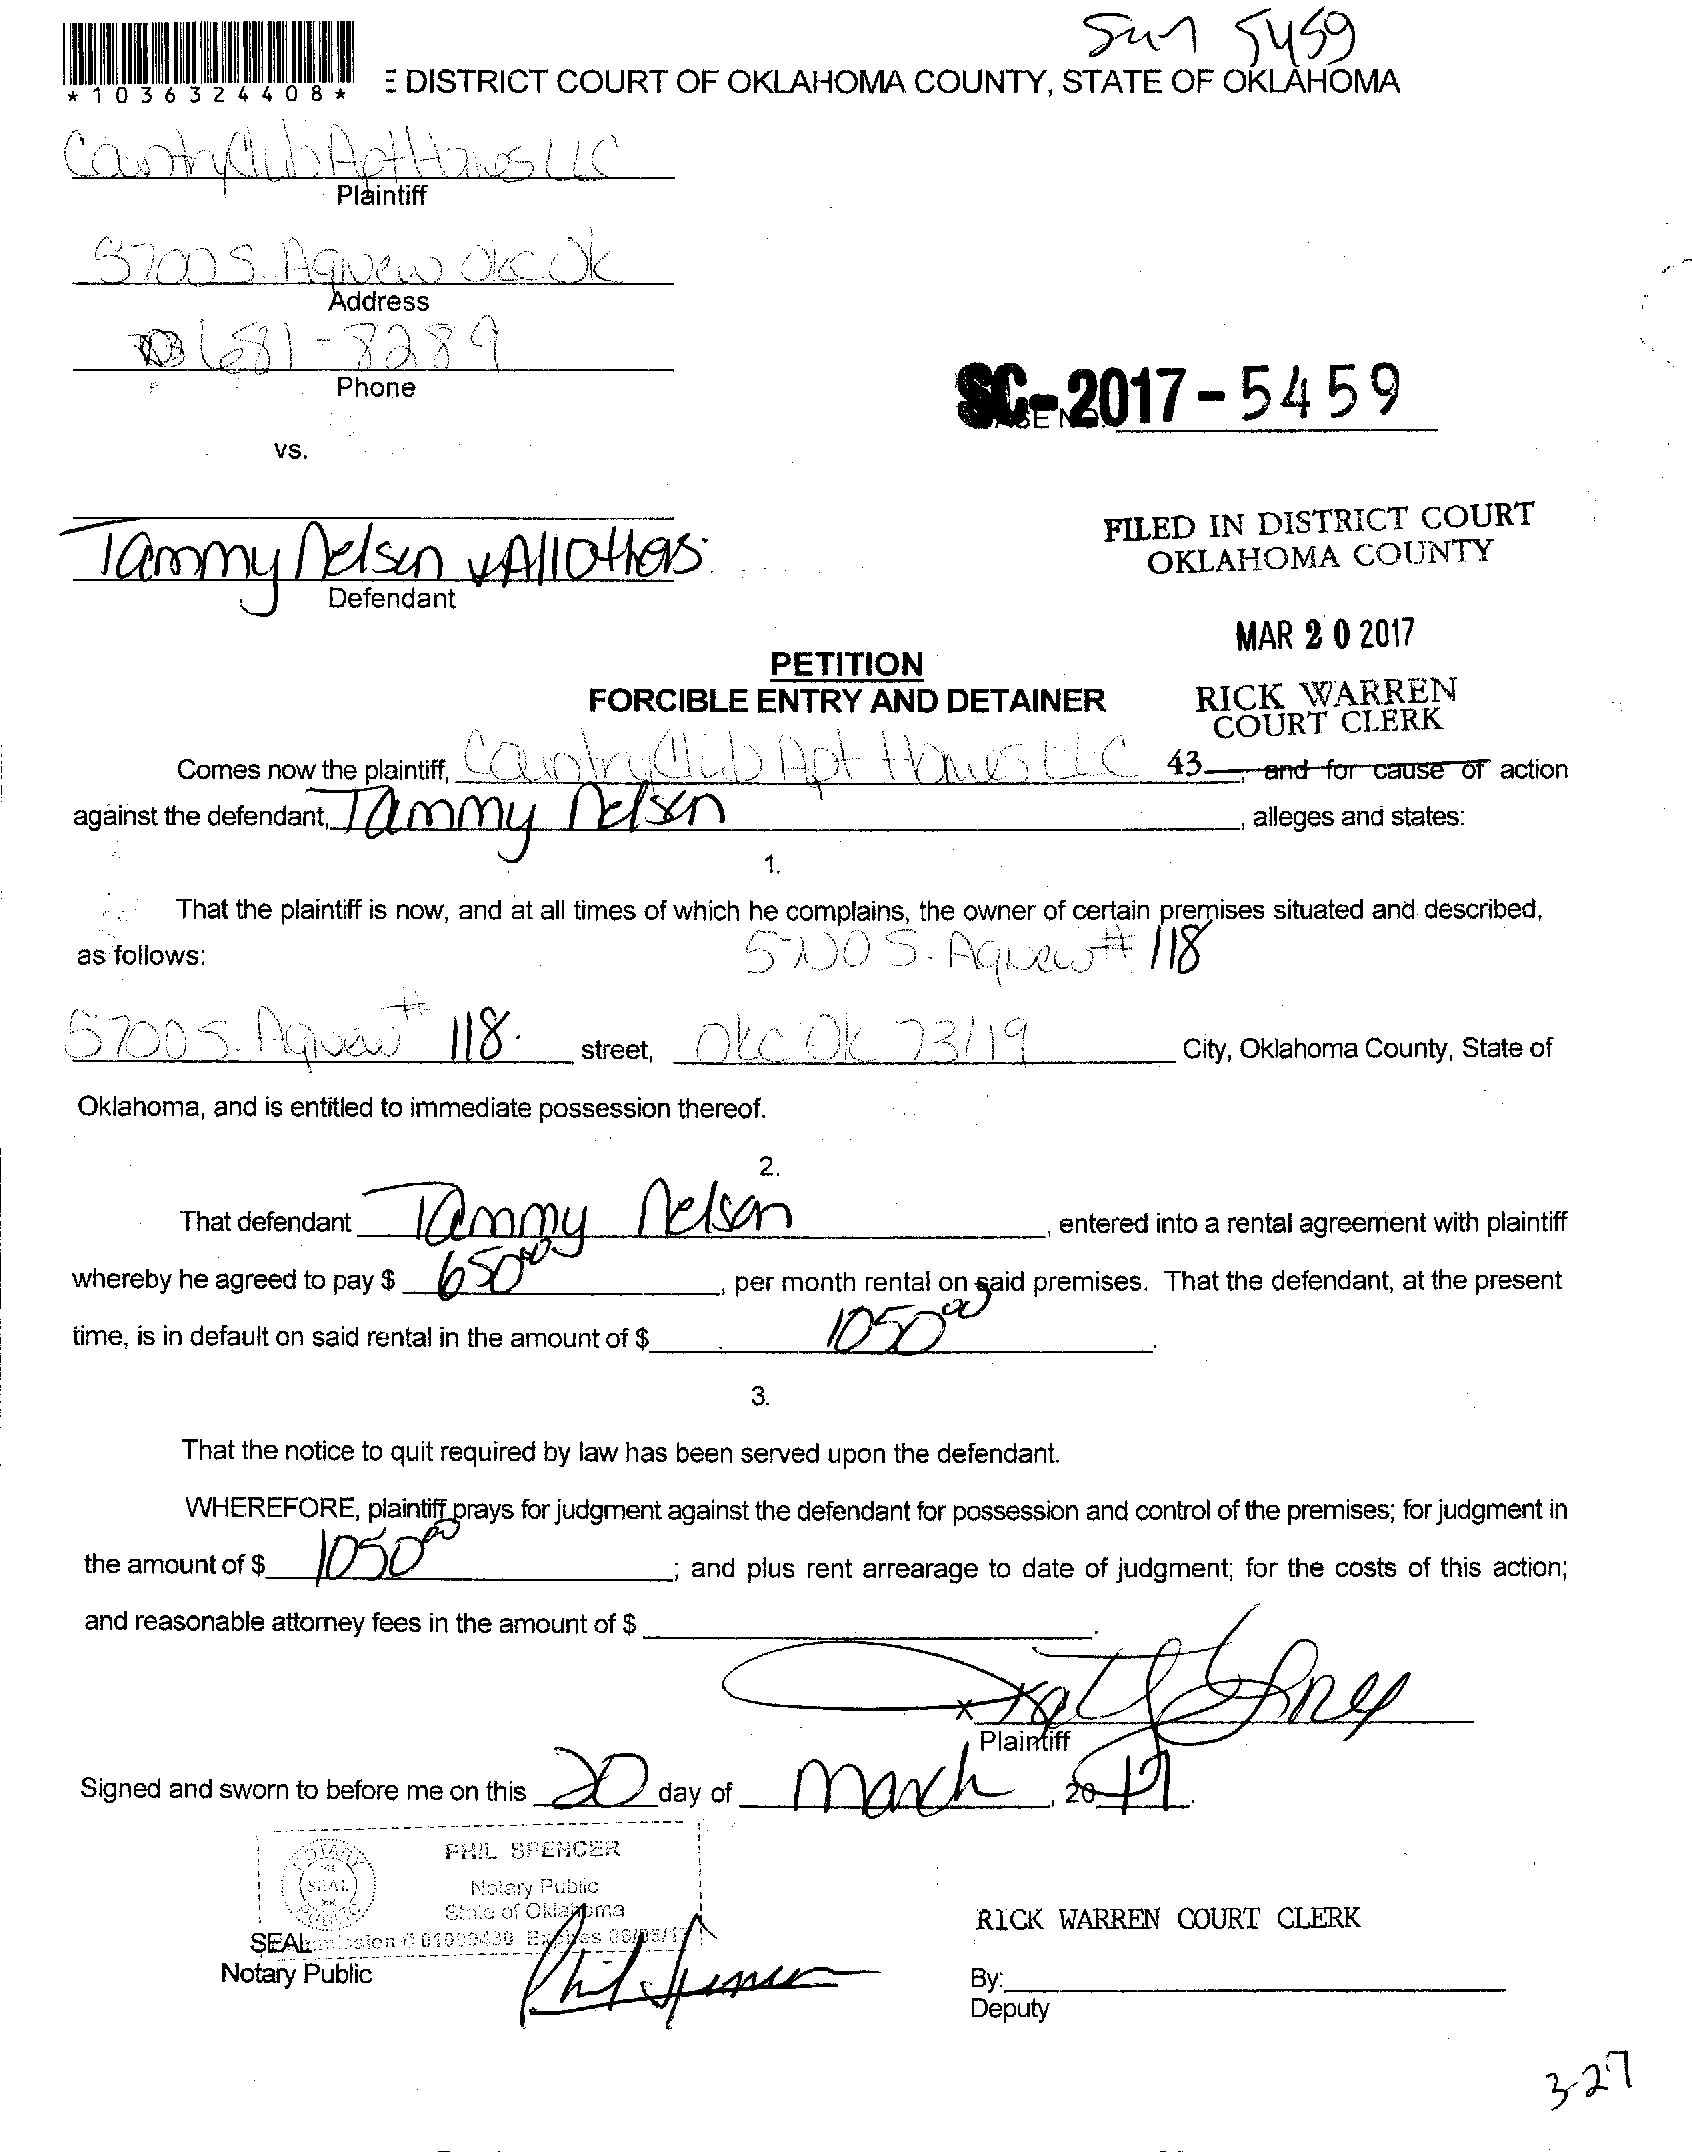 5459
*1036324408*
E DISTRICT COURT OF OKLAHOMA COUNTY, STATE OF OKLAHOMA
Country Club Apt Homes LLC
Plaintiff
5700 S. Agnew Okc Ok
Address
681-8289
Phone
SC-2017-5459
vs.
FILED IN DISTRICT COURT
OKLAHOMA COUNTY
Tammy Nelson & All Others
Defendant
MAR 20 2017
PETITION
FORCIBLE ENTRY AND DETAINER
RICK WARREN
COURT CLERK
Comes now the plaintiff, Country Club Apt Homes LLC 43 , and for cause of action
against the defendant, Tammy Nelson , alleges and states:
1.
That the plaintiff is now, and at all times of which he complains, the owner of certain premises situated and described,
as follows: 5700 S. Agnew # 118
5700 S. Agnew # 118. street, Okc Ok 73119 City, Oklahoma County, State of
Oklahoma, and is entitled to immediate possession thereof.
2.
That defendant Tammy Nelson , entered into a rental agreement with plaintiff
whereby he agreed to pay $ 650.00 , per month rental on said premises. That the defendant, at the present
time, is in default on said rental in the amount of $ 1050.00 .
3.
That the notice to quit required by law has been served upon the defendant.
WHEREFORE, plaintiff prays for judgment against the defendant for possession and control of the premises; for judgment in
the amount of $ 1050.00 ; and plus rent arrearage to date of judgment; for the costs of this action;
and reasonable attorney fees in the amount of $ .
x
Plaintiff
Signed and sworn to before me on this 20 day of March , 20 17.
PHIL SPENCER
Notary Public
State of Oklahoma
SEAL
Notary Public
Phil Spencer
RICK WARREN COURT CLERK
By:
Deputy
3-27